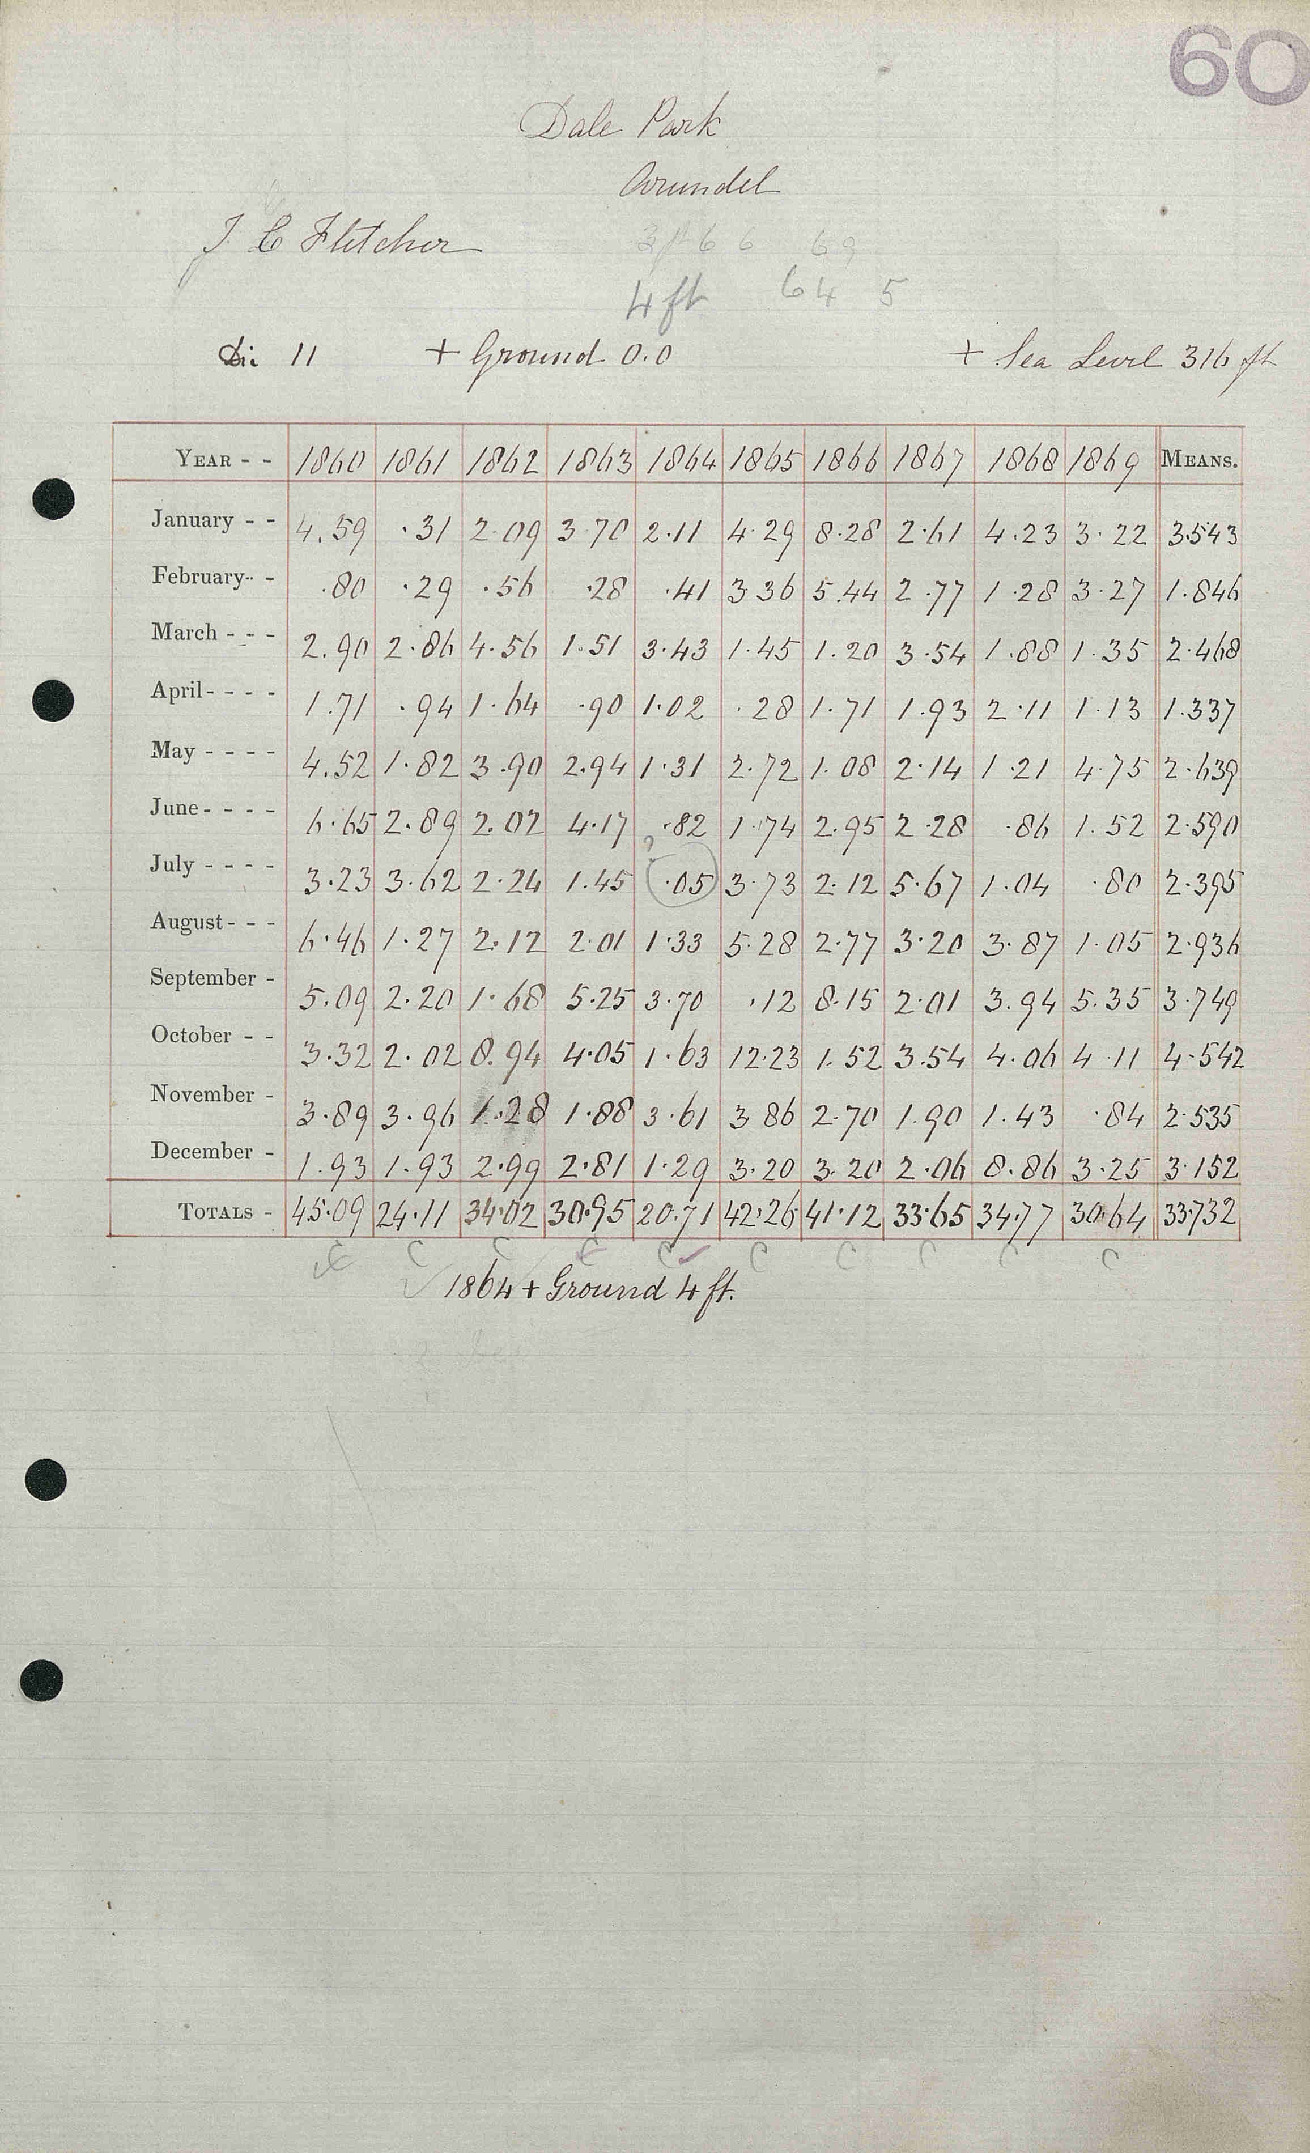 60
Dale Park
Arundel
J C Fletcher
4 ft 64 5
Dia 11 + Ground 0.0 + Sea Level 316 ft
YEAR - - 1860 1861 1862 1863 1864 1865 1866 1867 1868 1869 MEANS.
January - - 4.59 .31 2.09 3.70 2.11 4.29 8.28 2.61 4.23 3.22 3.543
February - - .80 .29 .56 .28 .41 3.36 5.44 2.77 1.28 3.27 1.846
March - - - 2.90 2.86 4.56 1.51 3.43 1.45 1.20 3.54 1.88 1.35 2.468
April - - - - 1.71 .94 1.64 .90 1.02 .28 1.71 1.93 2.11 1.13 1.337
May - - - - 4.52 1.82 3.90 2.94 1.31 2.72 1.08 2.14 1.21 4.75 2.639
June - - - - 6.65 2.89 2.02 4.17 .82 1.74 2.95 2.28 .86 1.52 2.590
July - - - - 3.23 3.62 2.24 1.45 ? .05 3.73 2.12 5.67 1.04 .80 2.395
August - - - 6.46 1.27 2.12 2.01 1.33 5.28 2.77 3.20 3.87 1.05 2.936
September - 5.09 2.20 1.68 5.25 3.70 .12 8.15 2.01 3.94 5.35 3.749
October - - 3.32 2.02 8.94 4.05 1.63 12.23 1.52 3.54 4.06 4.11 4.542
November - 3.89 3.96 1.28 1.88 3.61 3.86 2.70 1.90 1.43 .84 2.535
December - 1.93 1.93 2.99 2.81 1.29 3.20 3.20 2.06 8.86 3.25 3.152
TOTALS - 45.09 24.11 34.02 30.95 20.71 42.26 41.12 33.65 34.77 30.64 33.732
C C C C C C C C C C
1864 + Ground 4 ft.